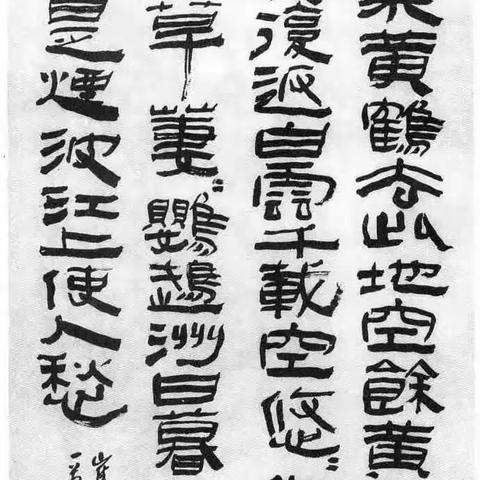 乘黄鶴去此地空餘黄
復返白雲千載空悠〻
草萋〻鸚鵡洲日暮
是煙波江上使人愁